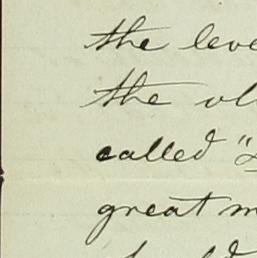 the leve
the ol
called "
great m